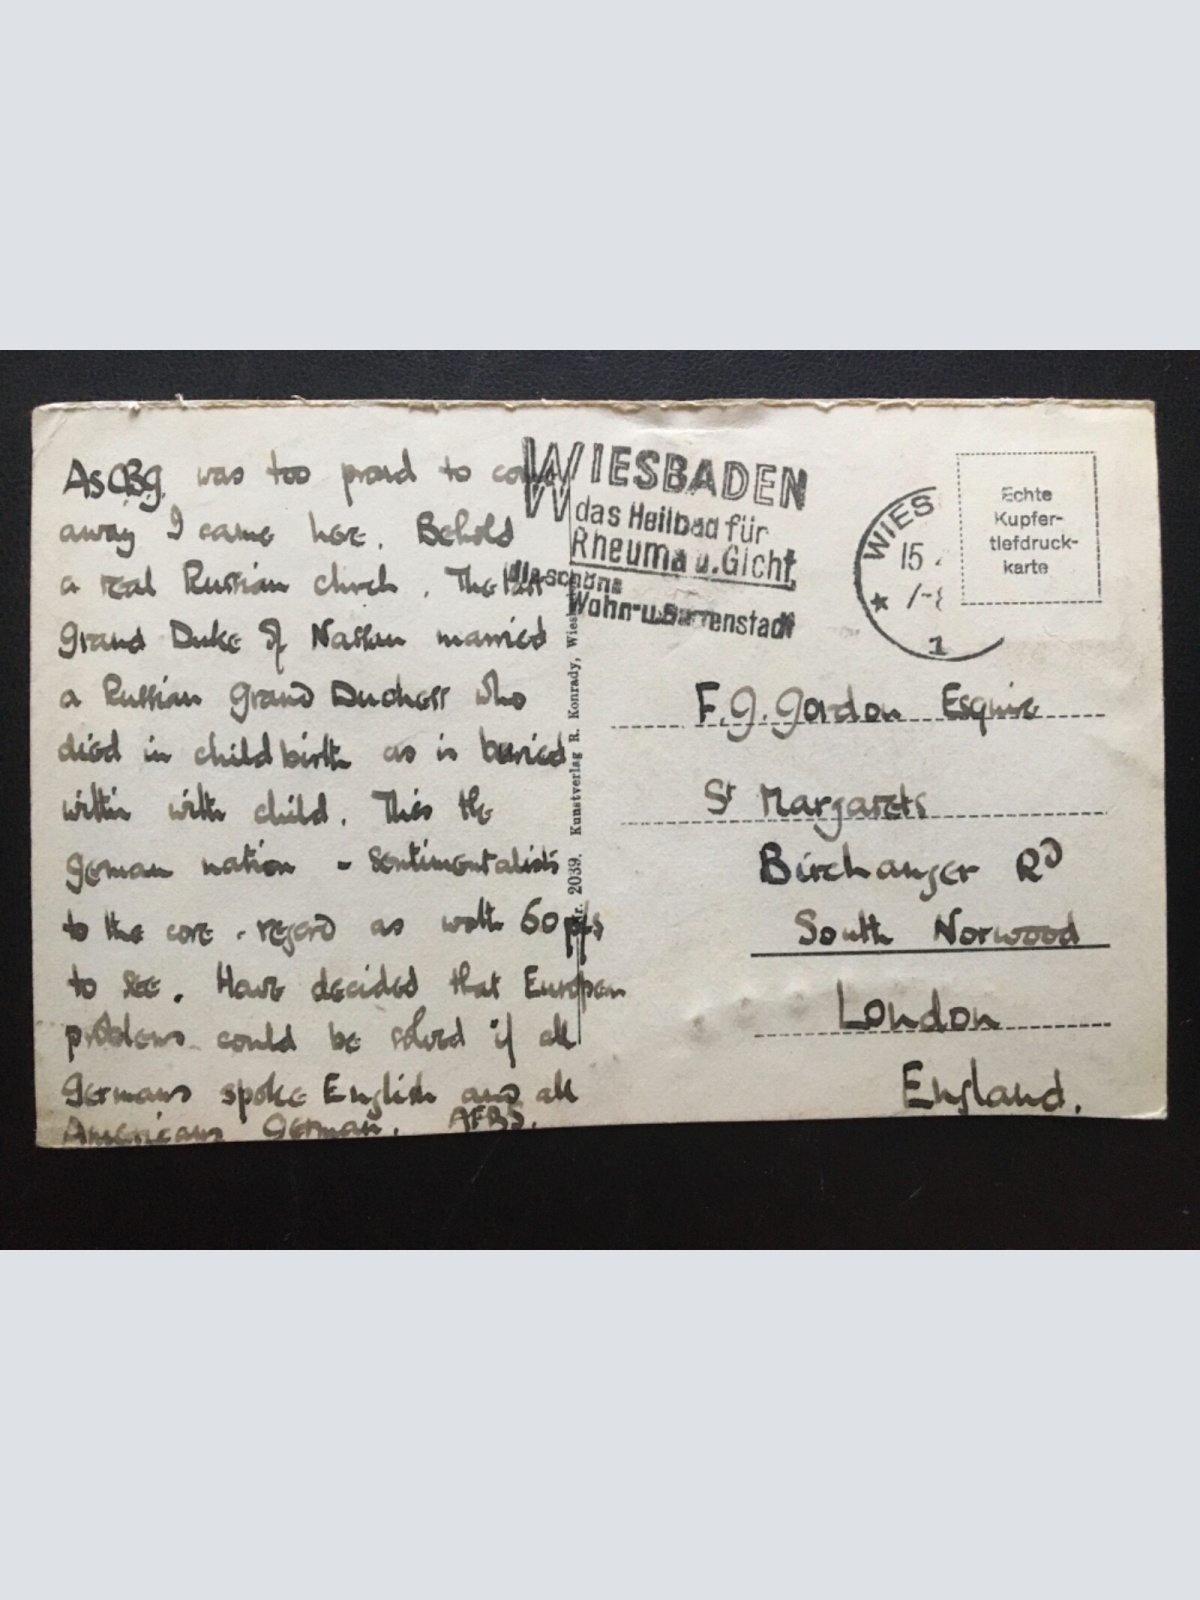 As CBG was too proud to come
away I came here. Behold
a real Russian church. The last
Grand Duke of Nassau married
a Russian Grand Duchess who
died in childbirth as is buried
within with child. This the
German nation - sentimentalists
to the core - regard as worth 60 pfs
to see. Have decided that European
problems could be solved if all
Germans spoke English and all
Americans German. AFBS.
WIESBADEN
das Heilbad für
Rheuma u. Gicht,
die schöne
Wohn- u. Gartenstadt
WIES
15
7-8
1
Echte
Kupfer-
tiefdruck-
karte
Nr. 2039. Kunstverlag R. Konrady, Wies
F.G. Gordon Esquire
St Margarets
Birchanger Rd
South Norwood
London
England.